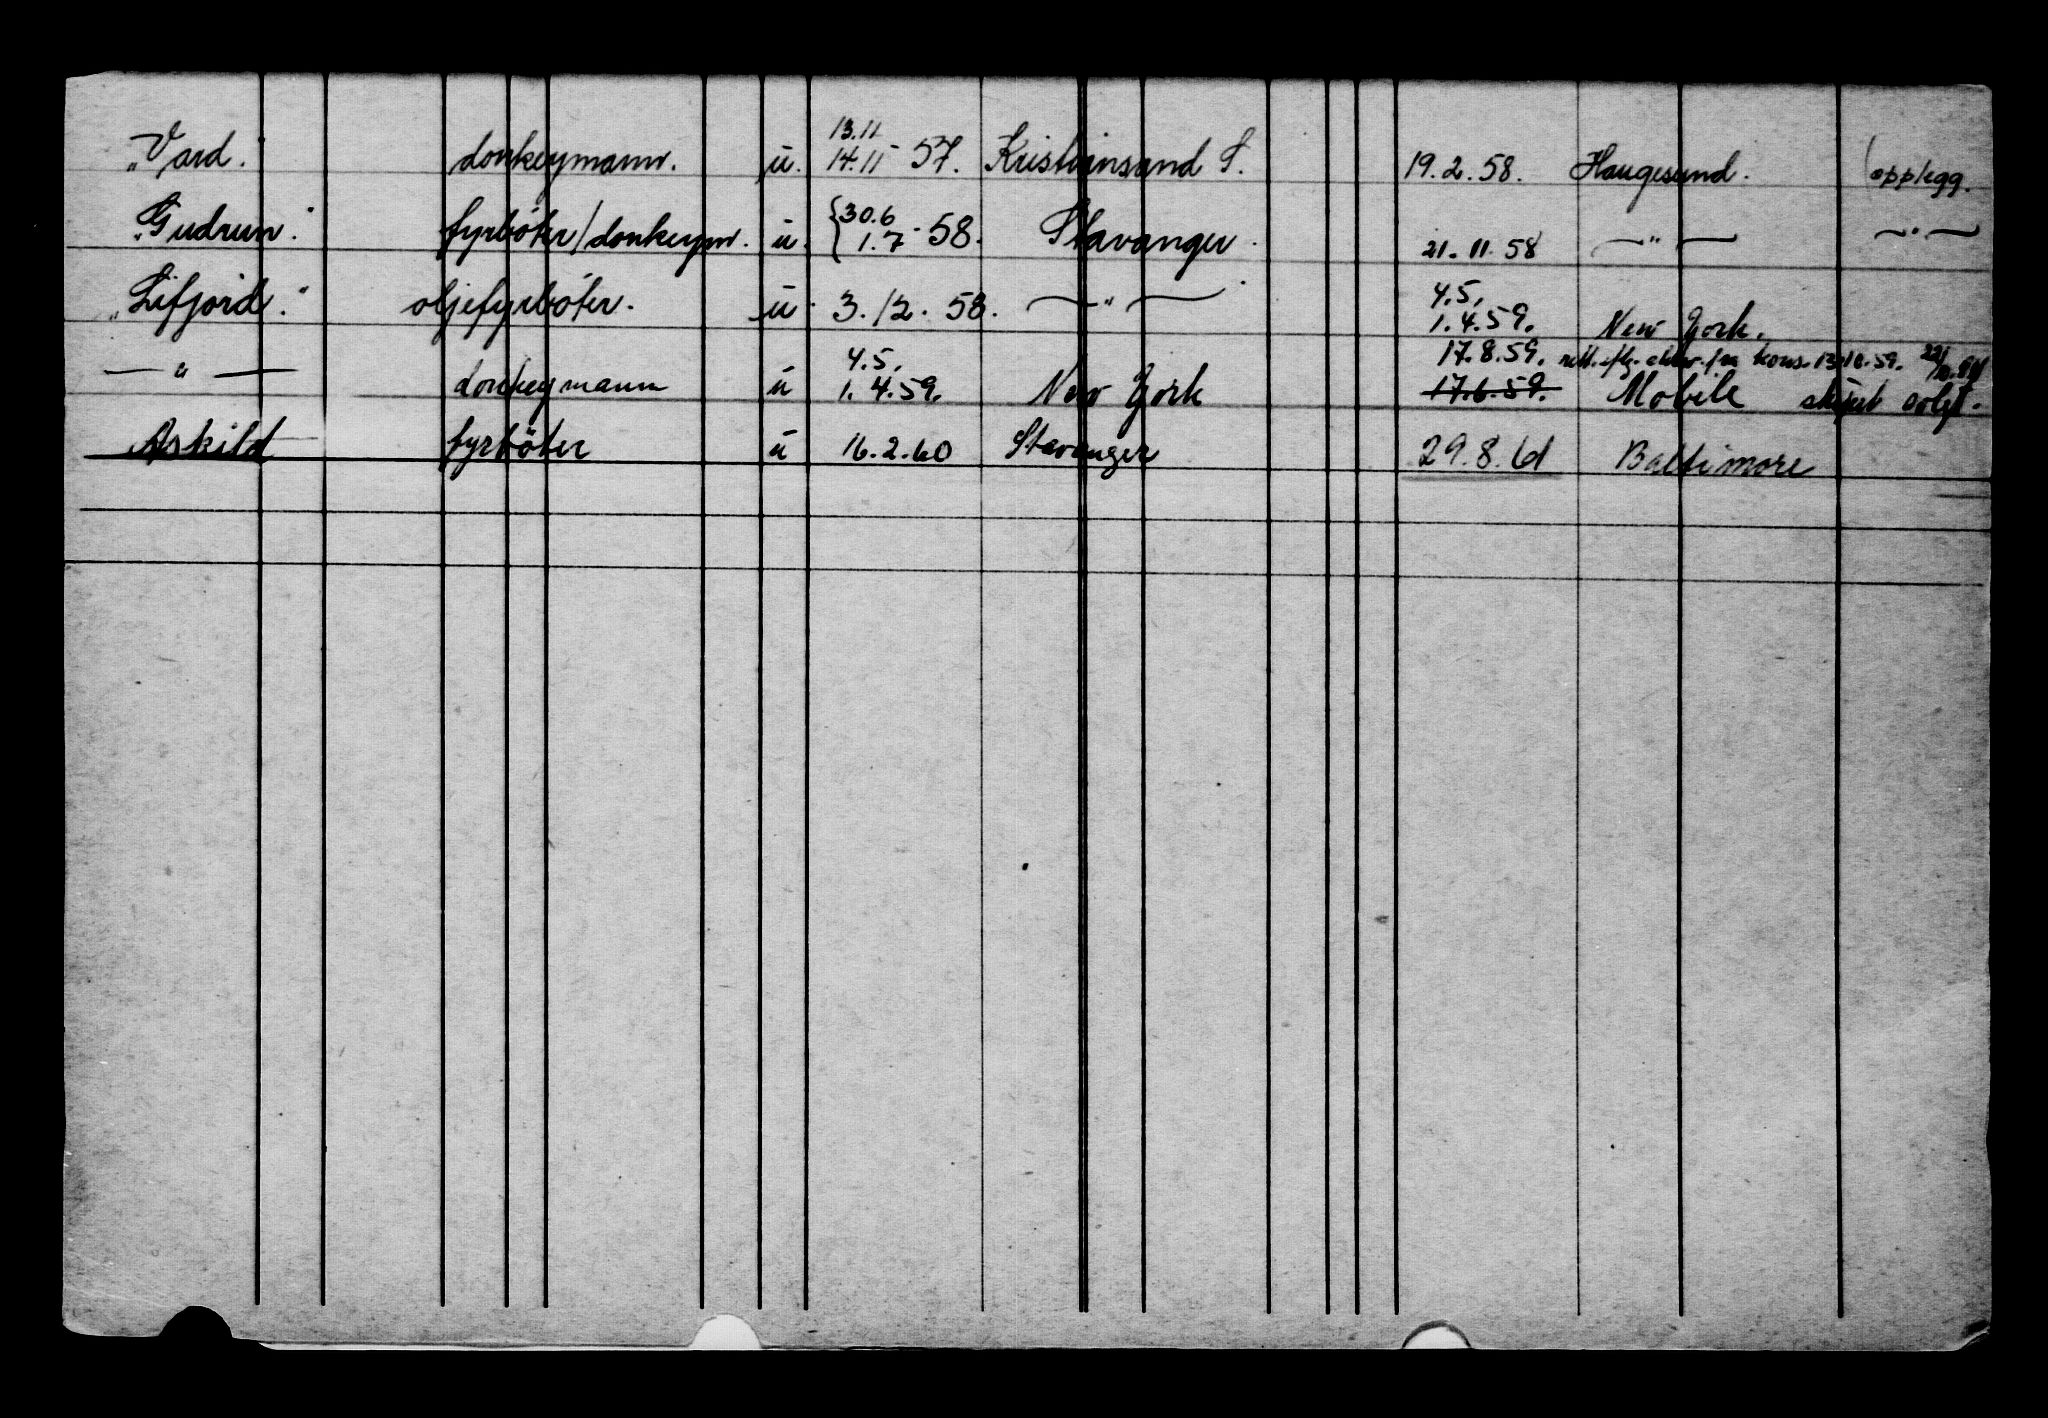 "Vard." donkeymann. u. 13.11 14.11 57. Kristiansand S. 19.2.58. Haugesund. opplegg.
"Gudrun." fyrböter/donkeym. u. {30.6 1.7 58. Stavanger. 21.11.58 —"— —"—
"Lifjord." oljefyrböter. u. 3.12.58. —"— 4.5. 1.4.59. New York.
—"— donkeymann u 4.5. 1.4.59. New York 17.8.59. rett. fra kons. 13.10.59.
17.6.59. Mobile skipet solgt.
Askild fyrböter u 16.2.60 Stavanger 29.8.61 Baltimore